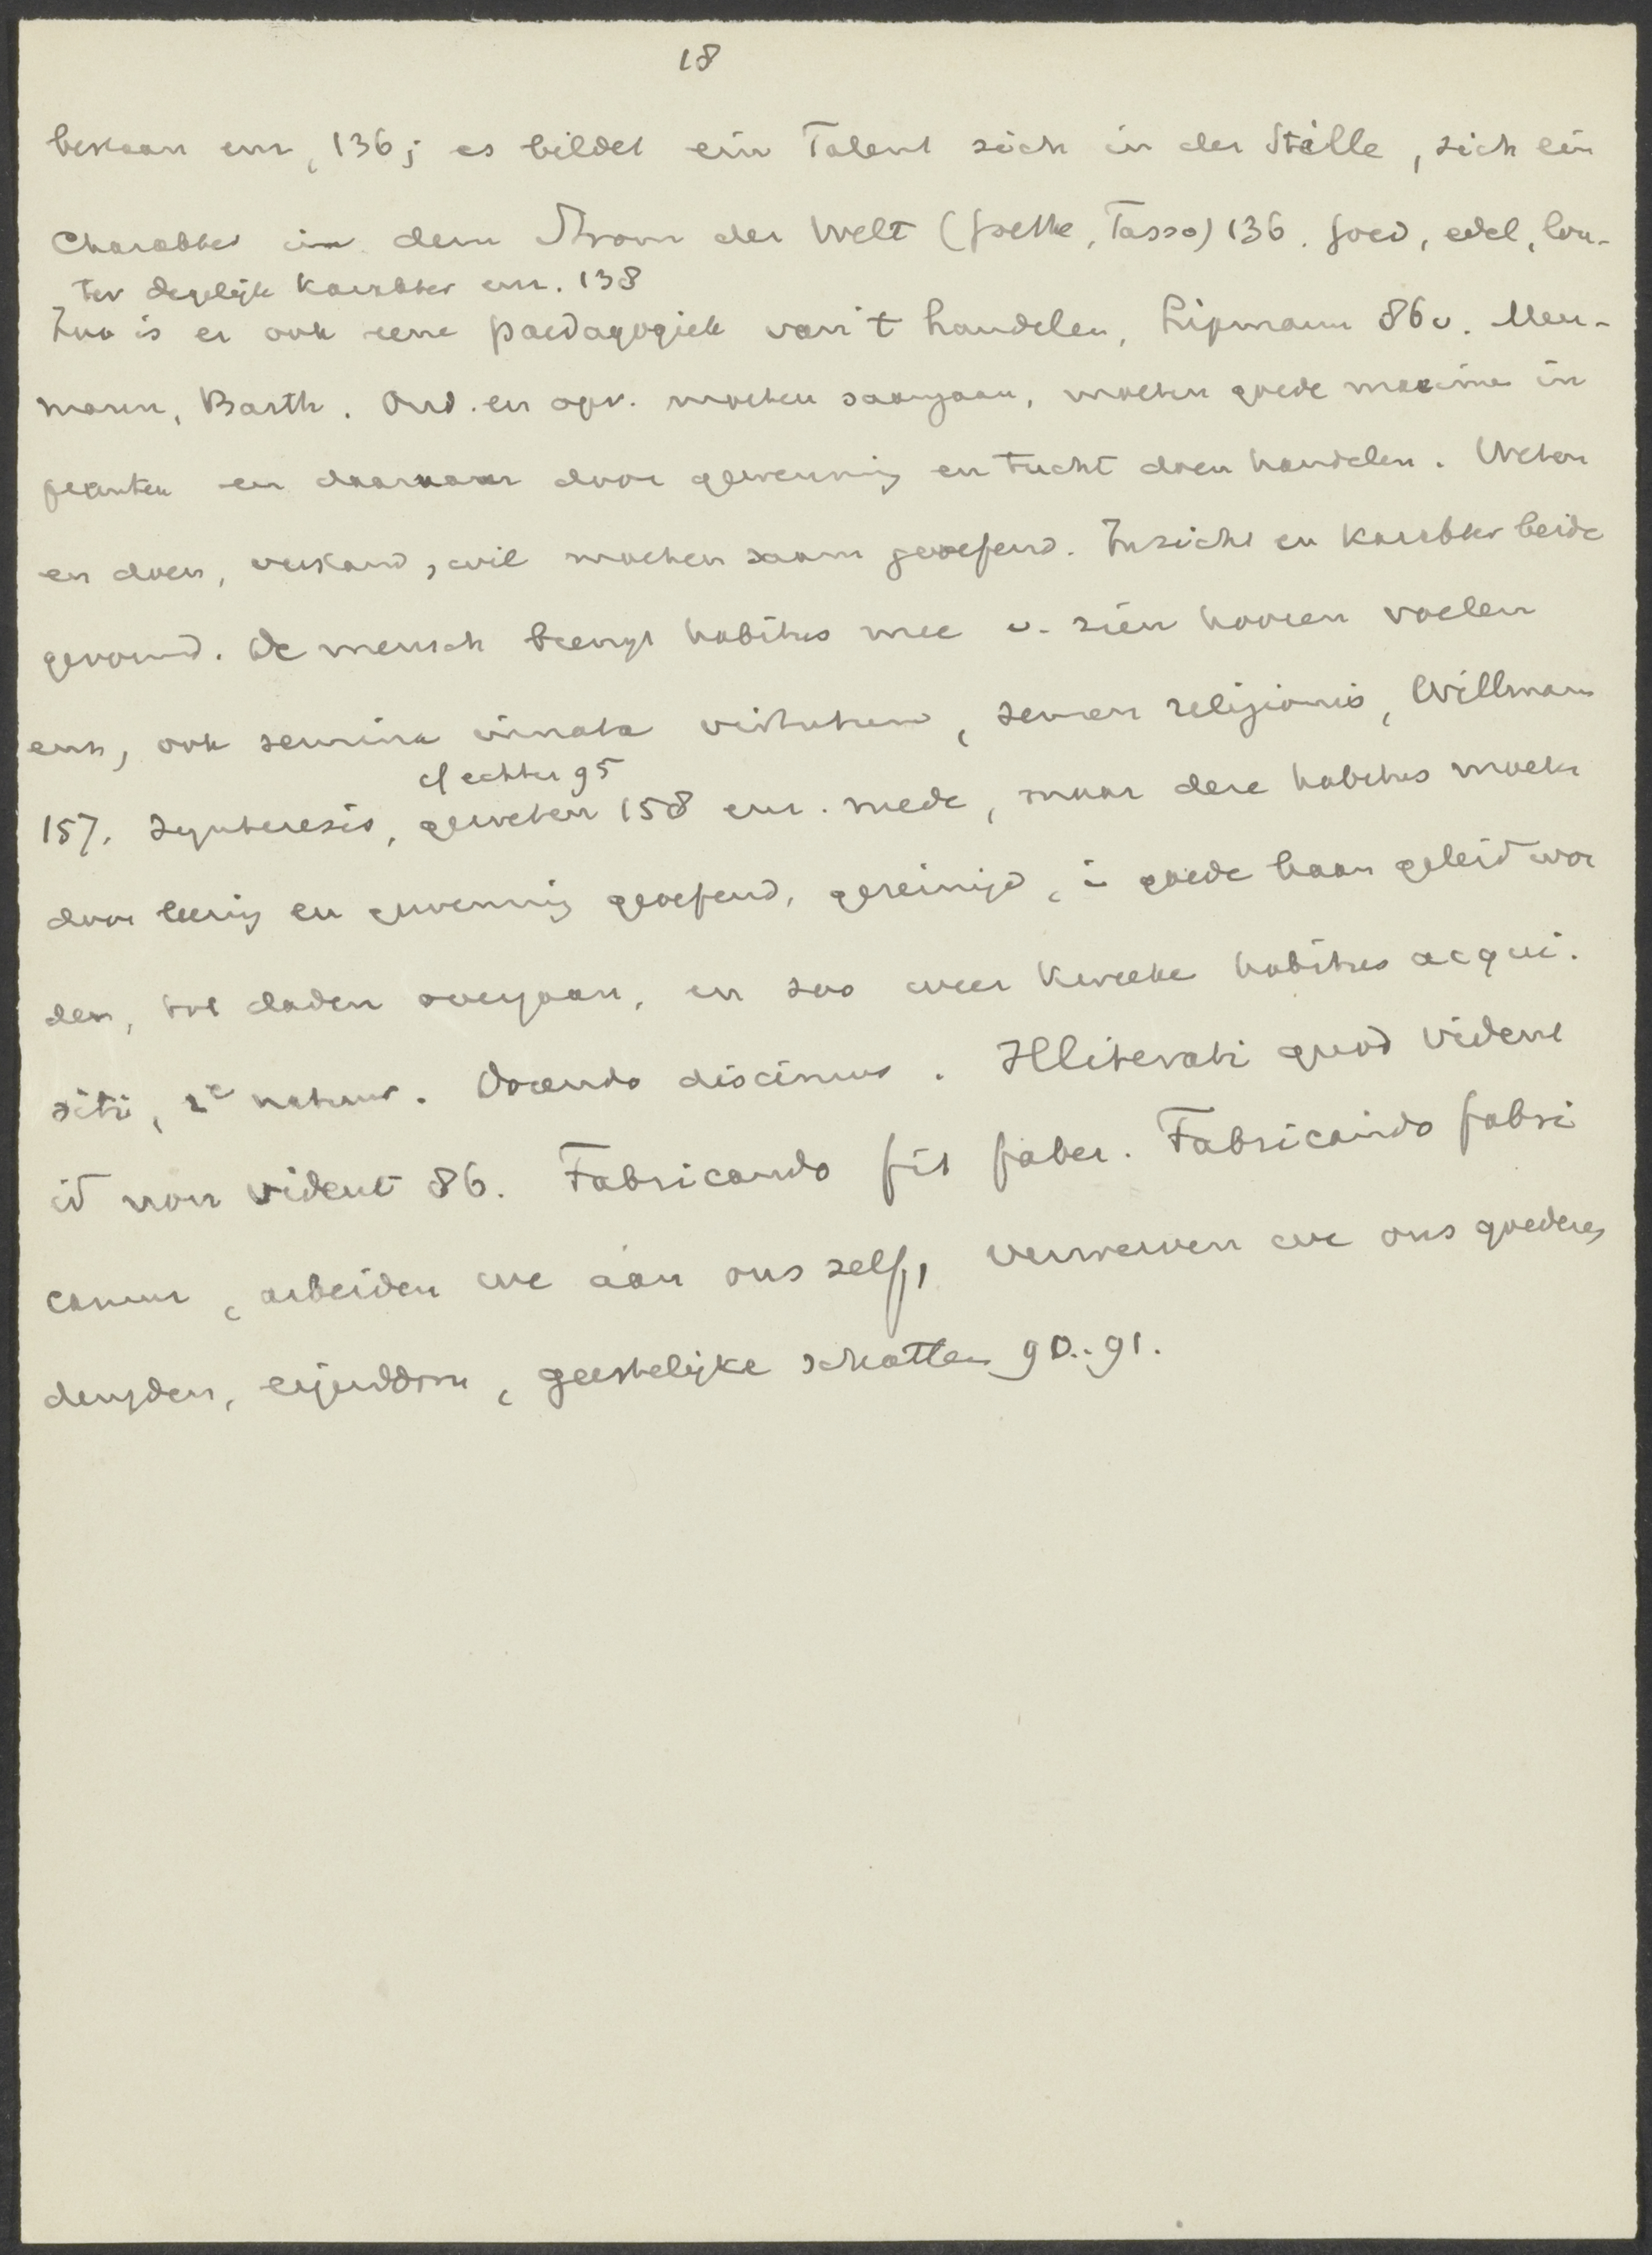 18
bestaan enz, 136; es bildet ein Talent sich in der Stille, sich ein
Charakter in dem Strom der Welt (Goethe, Tasso) 136. Goed, edel, lou-
ter degelijk karakter enz. 138
Zoo is er ook eene paedagogiek van 't handelen, Lipmann 86v. Meu-
mann, Barth. Ond. en opv. moeten saamgaan, moeten goede maxime in
planten en daarnaar door gewenning en tucht doen handelen. Weten
en doen, verstand, wil moeten saam geoefend. Inzicht en karakter beide
gevormd. De mensch brengt habitus mee v. zien hooren voelen
enz, ook semina innata virtutum, semen religionis, Willmann
cf echter 95
157. Synteresis, geweten 158 enz. mede, maar deze habitus moete
door leering en gewenning geoefend, gereinigd, i goede baan geleid wor
den, tot daden overgaan, en zoo weer kweeke habitus acqui.
siti, 2e natuur. Docendo discimus. Illiterati quod vident
id non vident 86. Fabricando fit faber. Fabricando fabri
camur, arbeiden we aan ons zelf, verwerven we ons goederen
deugden, eigendom, geestelijke schatten 90..91.